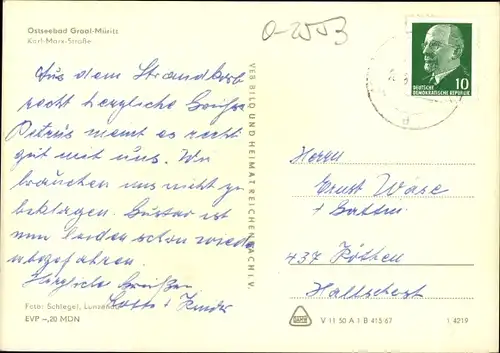 Ostseebad Graal-Müritz
Karl-Marx-Straße
O-2553
Aus dem Strandkorb
recht herzliche Grüße.
Petrus meint es recht
gut mit uns. Wir
brauchen uns nicht zu
beklagen. Gustav ist
nun leider schon wieder
abgefahren.
Herzliche Grüße
Lotte + Kinder
Foto: Schlegel, Lunzenau
EVP –,20 MDN
VEB BILD UND HEIMAT REICHENBACH I. V.
10
DEUTSCHE
DEMOKRATISCHE REPUBLIK
Herrn
Ernst Wäse
+ Gattin
437 Köthen
V 11 50 A 1 B 415/67
1 4219